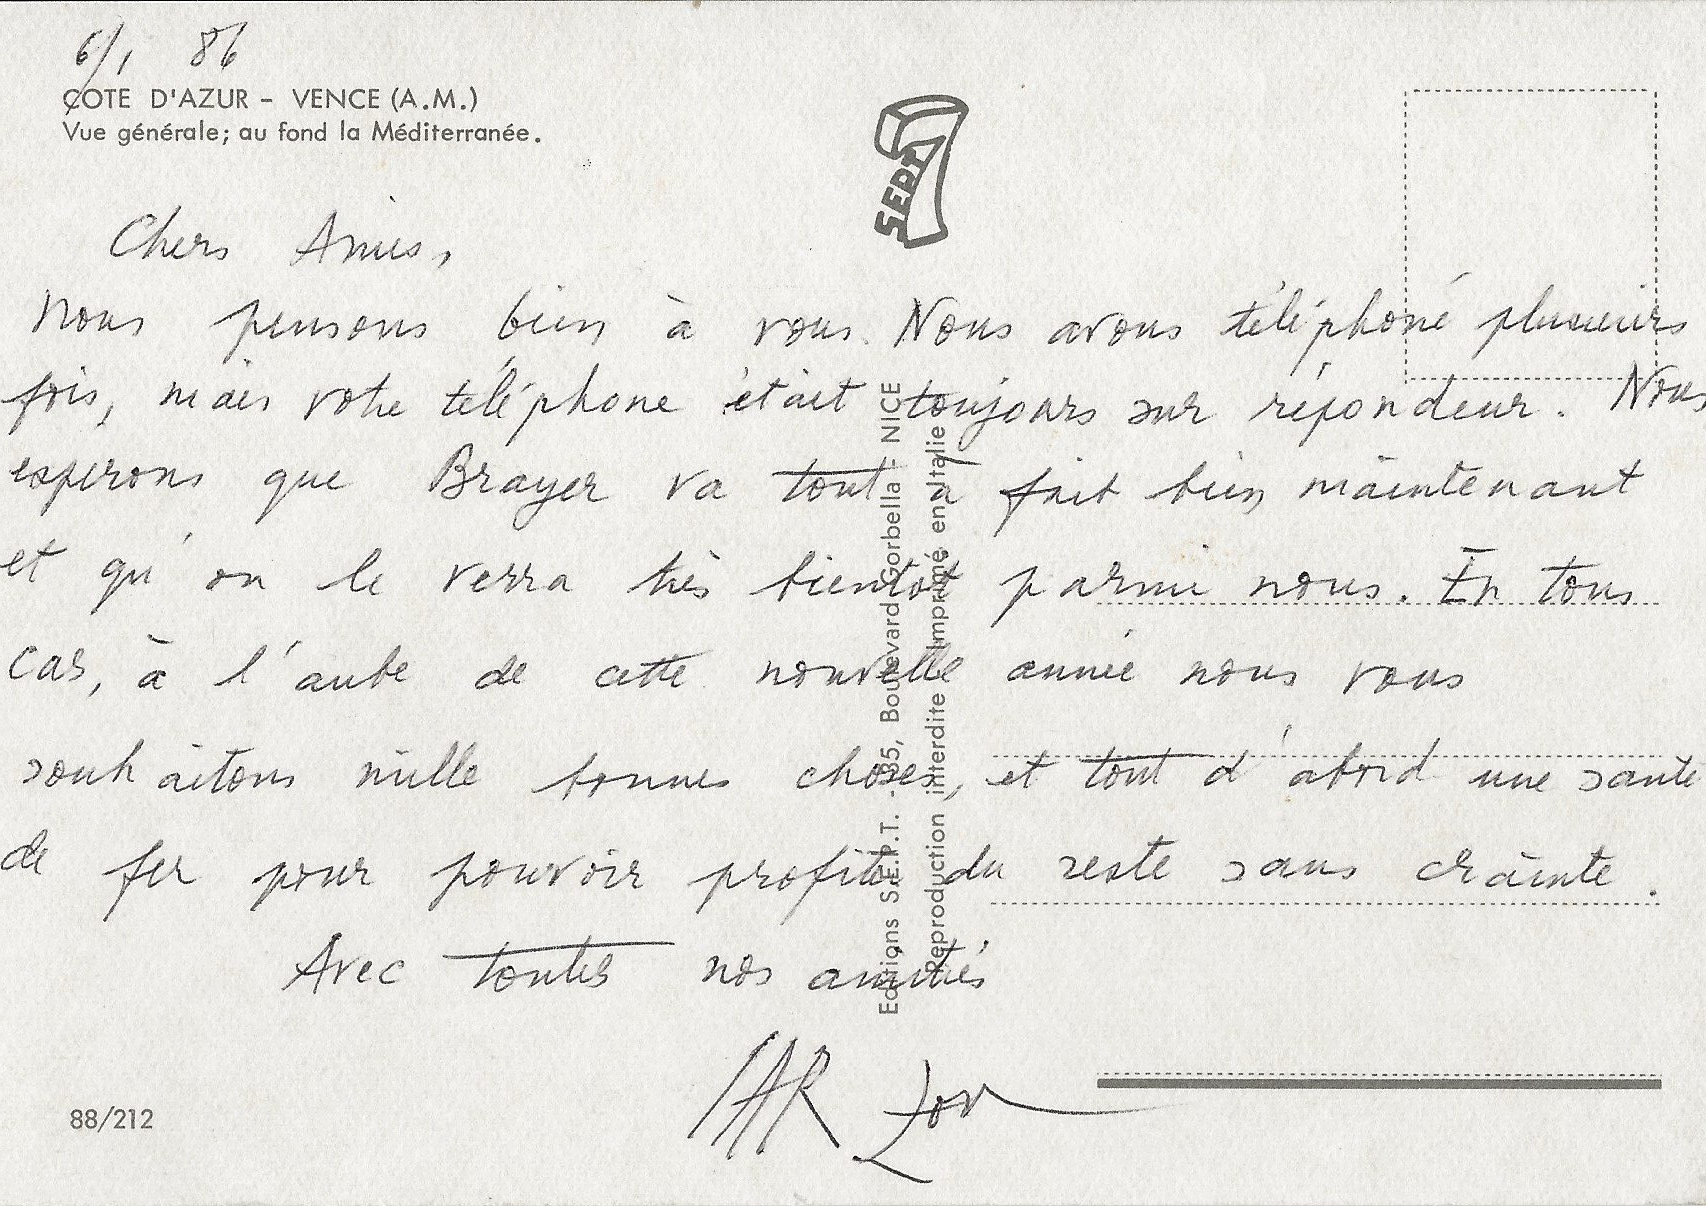 6/1 86
COTE D'AZUR - VENCE (A.M.)
Vue générale; au fond la Méditerranée.
SEPT
Chers Amies,
Nous pensons bien à vous. Nous avons téléphoné plusieurs
fois, mais votre téléphone était toujours sur répondeur. Nous
esperons que Brayer va tout à fait bien maintenant
et qu'on le verra très bientot parmi nous. En tous
cas, à l'aube de cette nouvelle année nous vous
souhaitons mille bonnes choses, et tout d'abord une santé
de fer pour pouvoir profiter du reste sans crainte.
Avec toutes nos amitiés
Editions S.E.P.T. - 35, Boulevard Gorbella - NICE
Reproduction interdite Imprimé en Italie
88/212